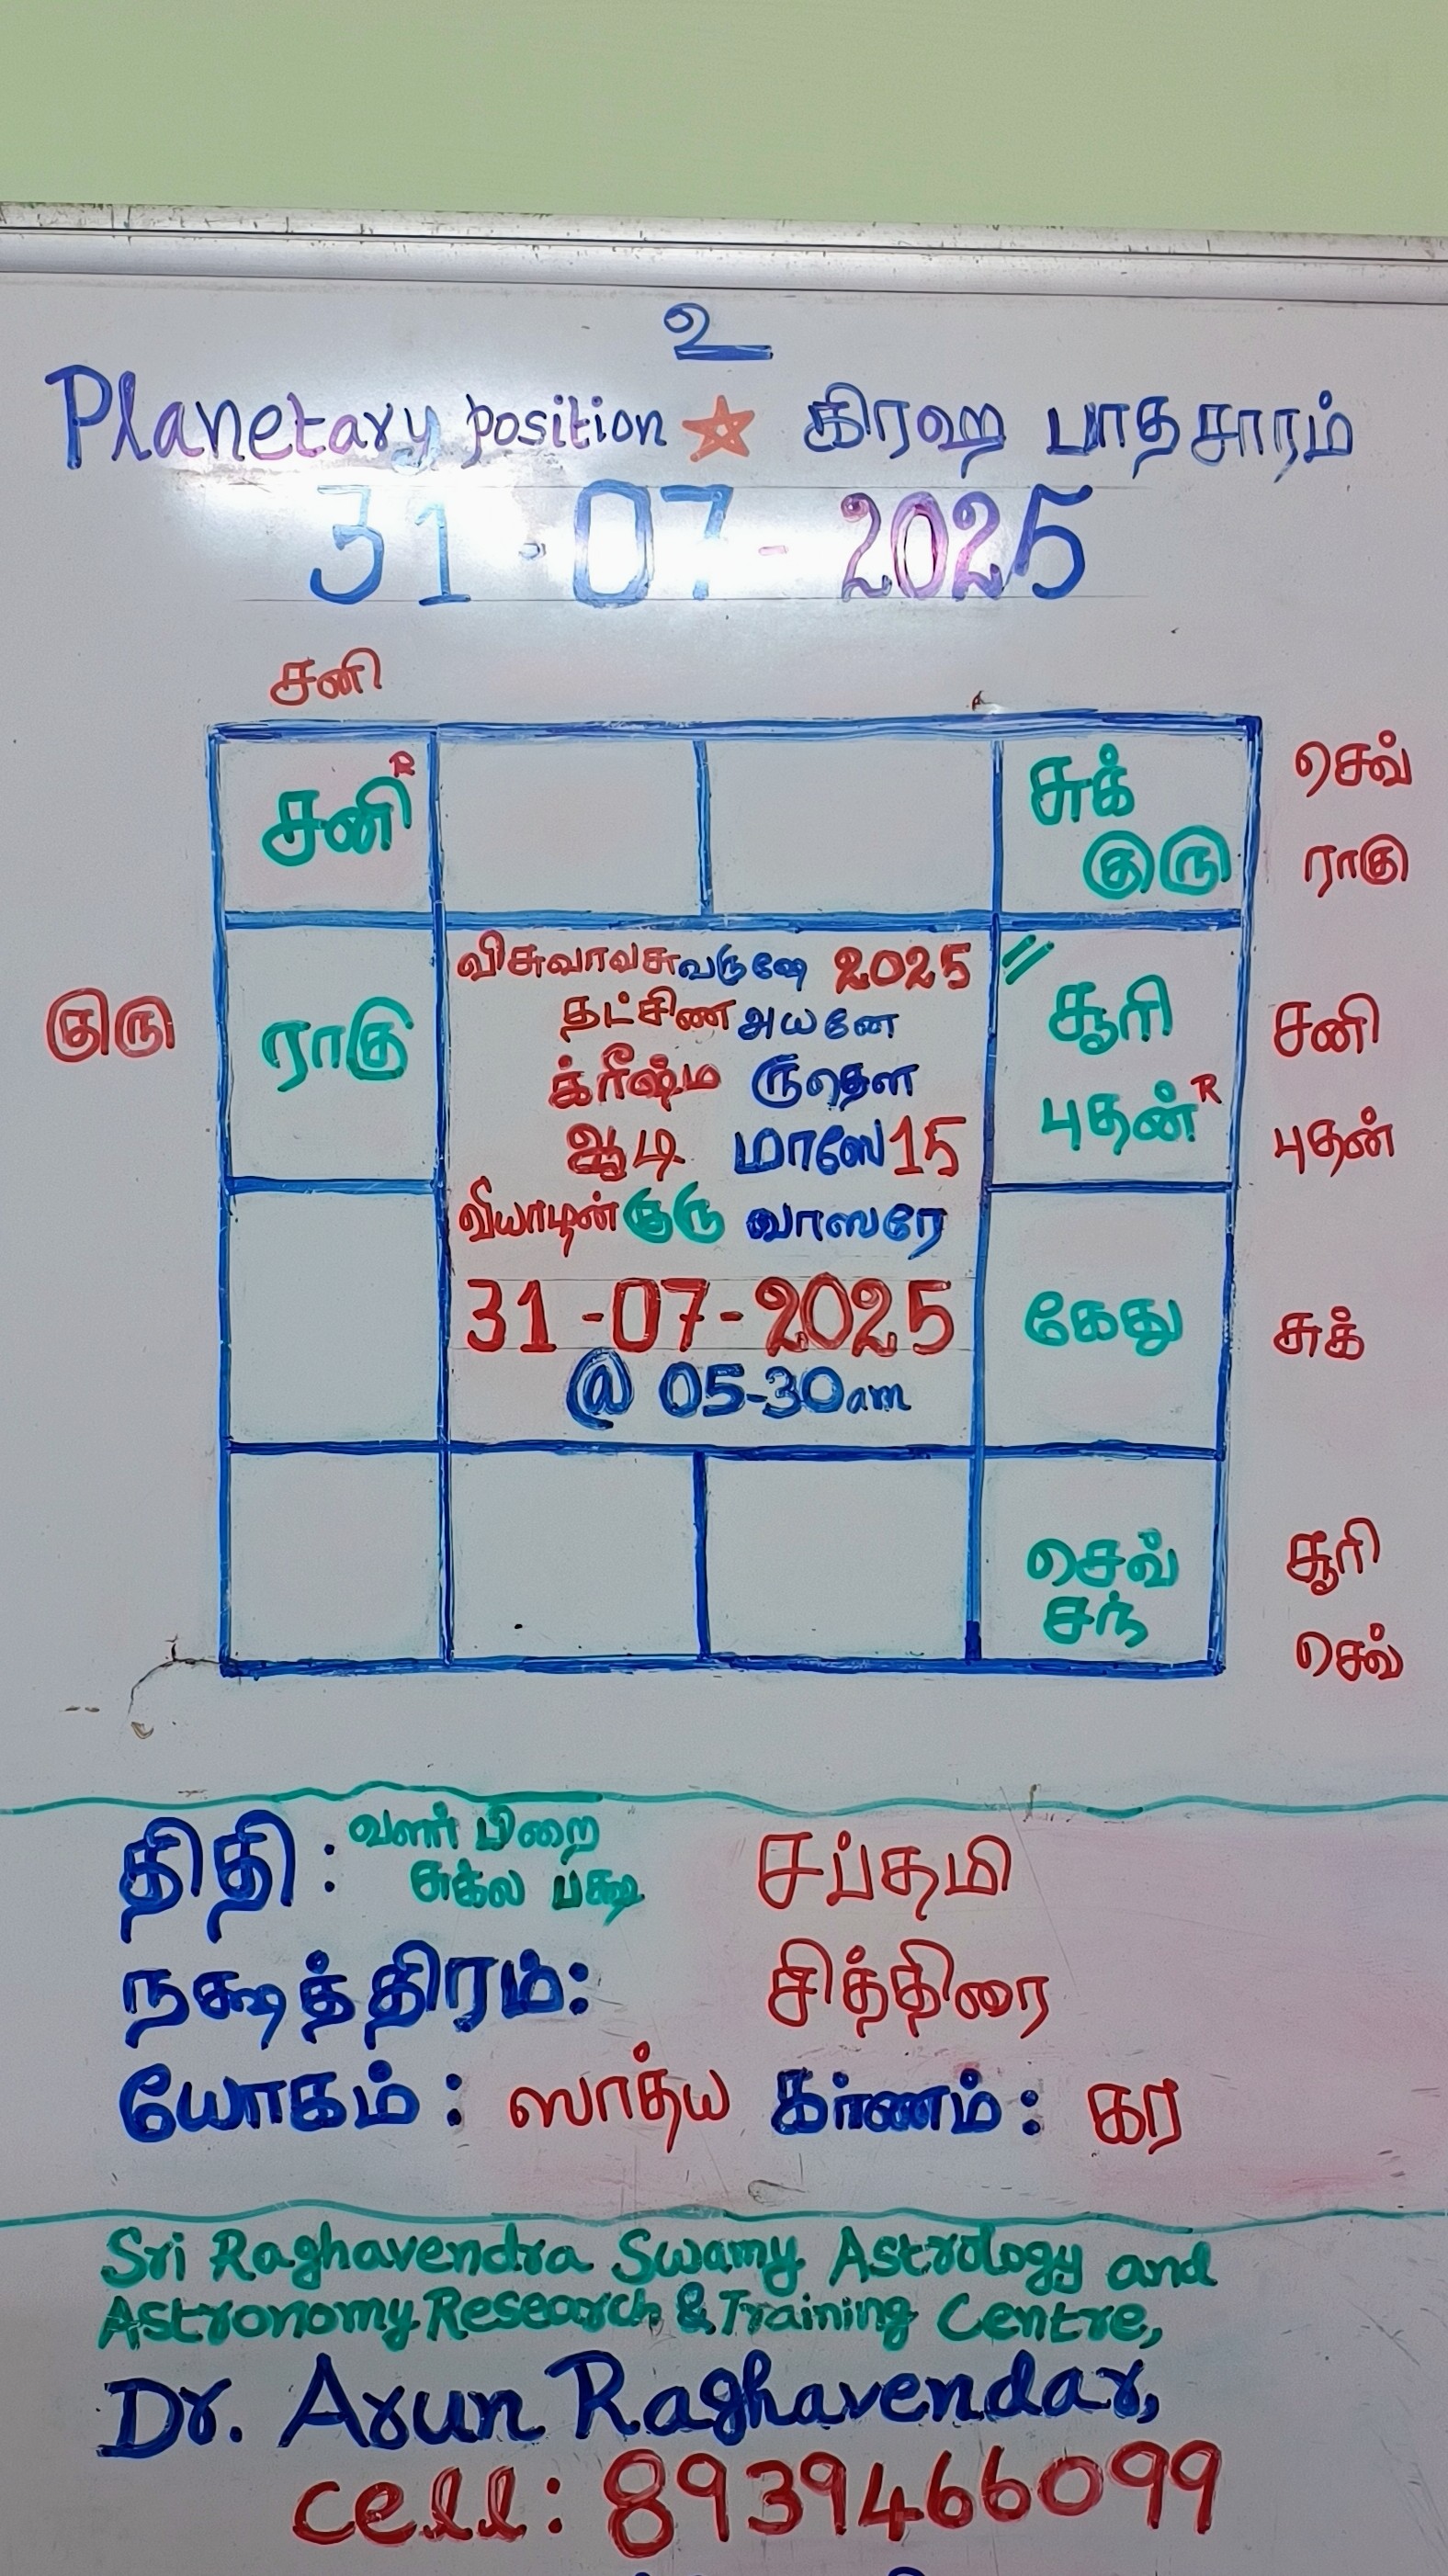 உ
Planetary position ☆ கிரஹ பாதசாரம்
31-07-2025
சனி
சனி R
சுக்
குரு
செவ்
ராகு
குரு
ராகு
விசுவாவசுவருஷே 2025
தட்சிண அயனே
க்ரீஷ்ம ருதௌ
ஆடி மாஸே 15
வியாழன் குரு வாஸரே
31-07-2025
@ 05-30am
சூரி
புதன் R
சனி
புதன்
கேது
சுக்
செவ்
சந்
சூரி
செவ்
திதி : வளர் பிறை சுக்ல பக்ஷ சப்தமி
நக்ஷத்திரம்: சித்திரை
யோகம் : ஸாத்ய கர்ணம் : கர
Sri Raghavendra Swamy Astrology and
Astronomy Research & Training Centre,
Dr. Arun Raghavendar,
cell: 8939466099